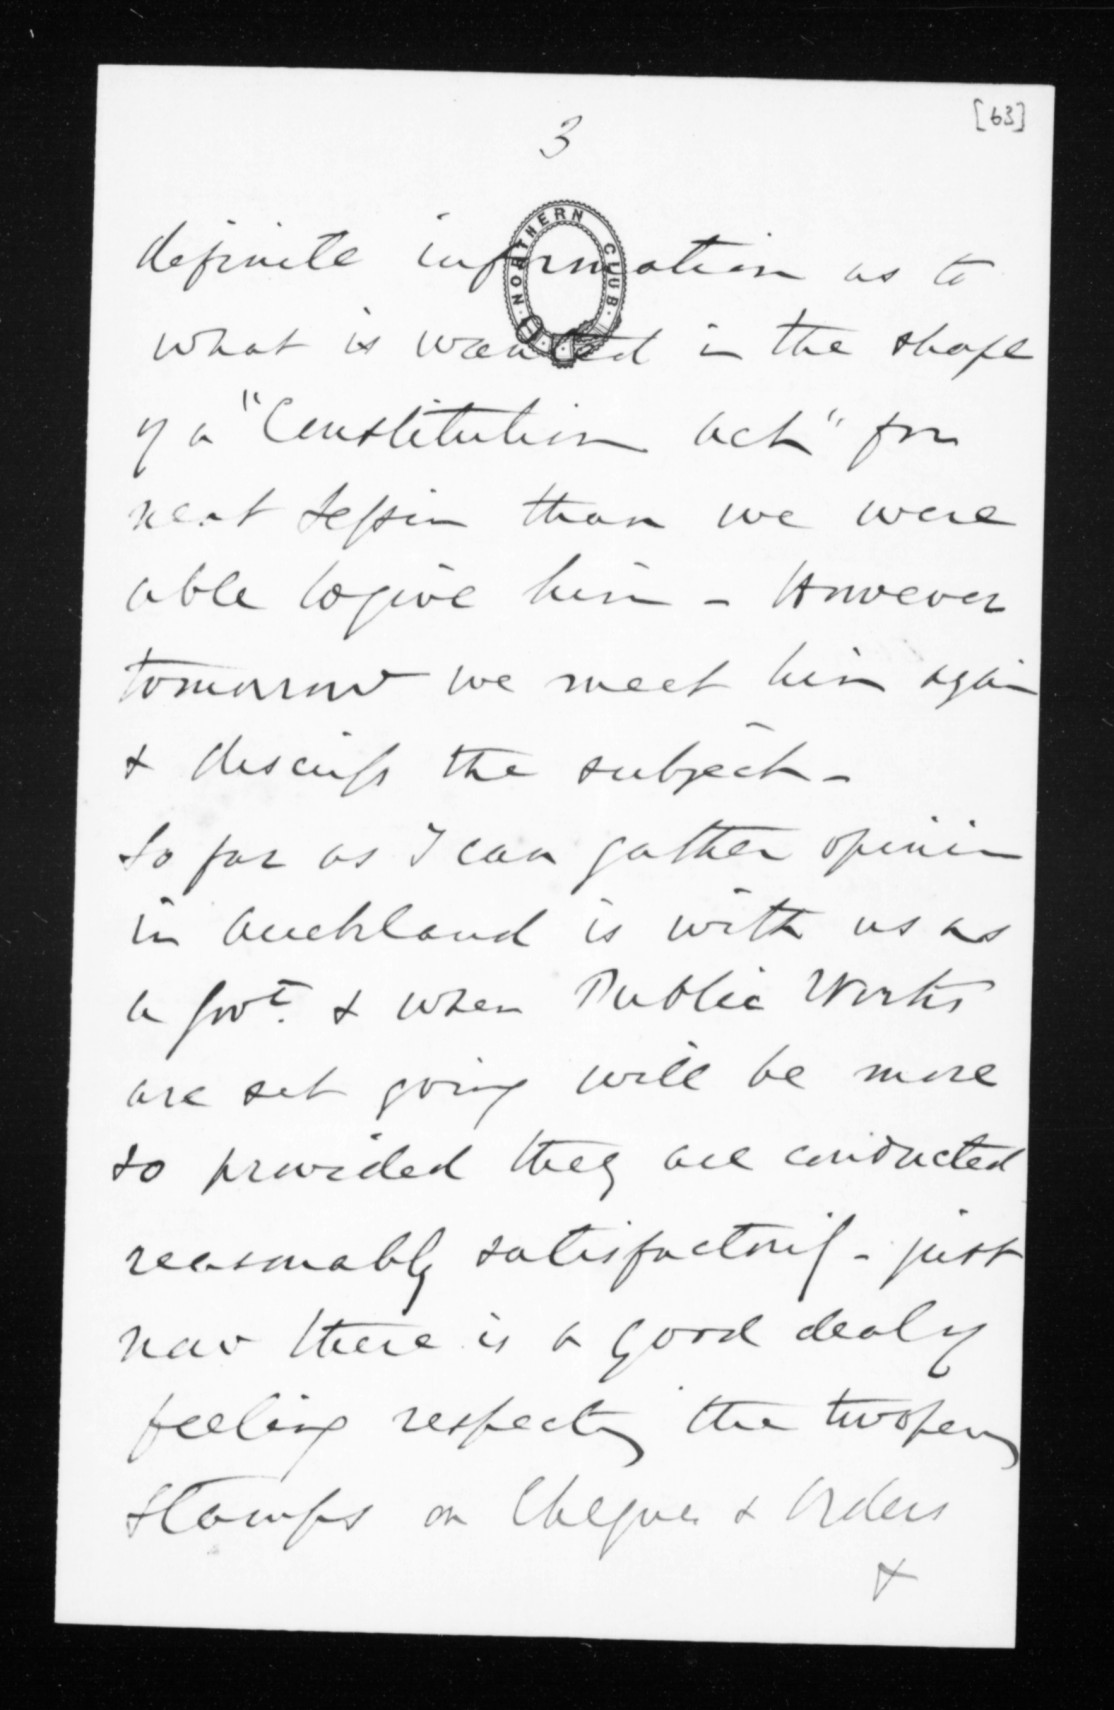 [63]
3
NORTHERN CLUB
definite information as to
what is wanted in the shape
of a "Constitution act" for
next Session than we were
able to give him - However
tomorrow we meet him again
& discuss the subject -
So far as I can gather opinion
in Auckland is with us as
a Govt. & when Public Works
are set going will be more
so provided they are conducted
reasonably satisfactorily - just
now there is a good deal of
feeling respecting the twopenny
stamps on Cheques & Orders
&